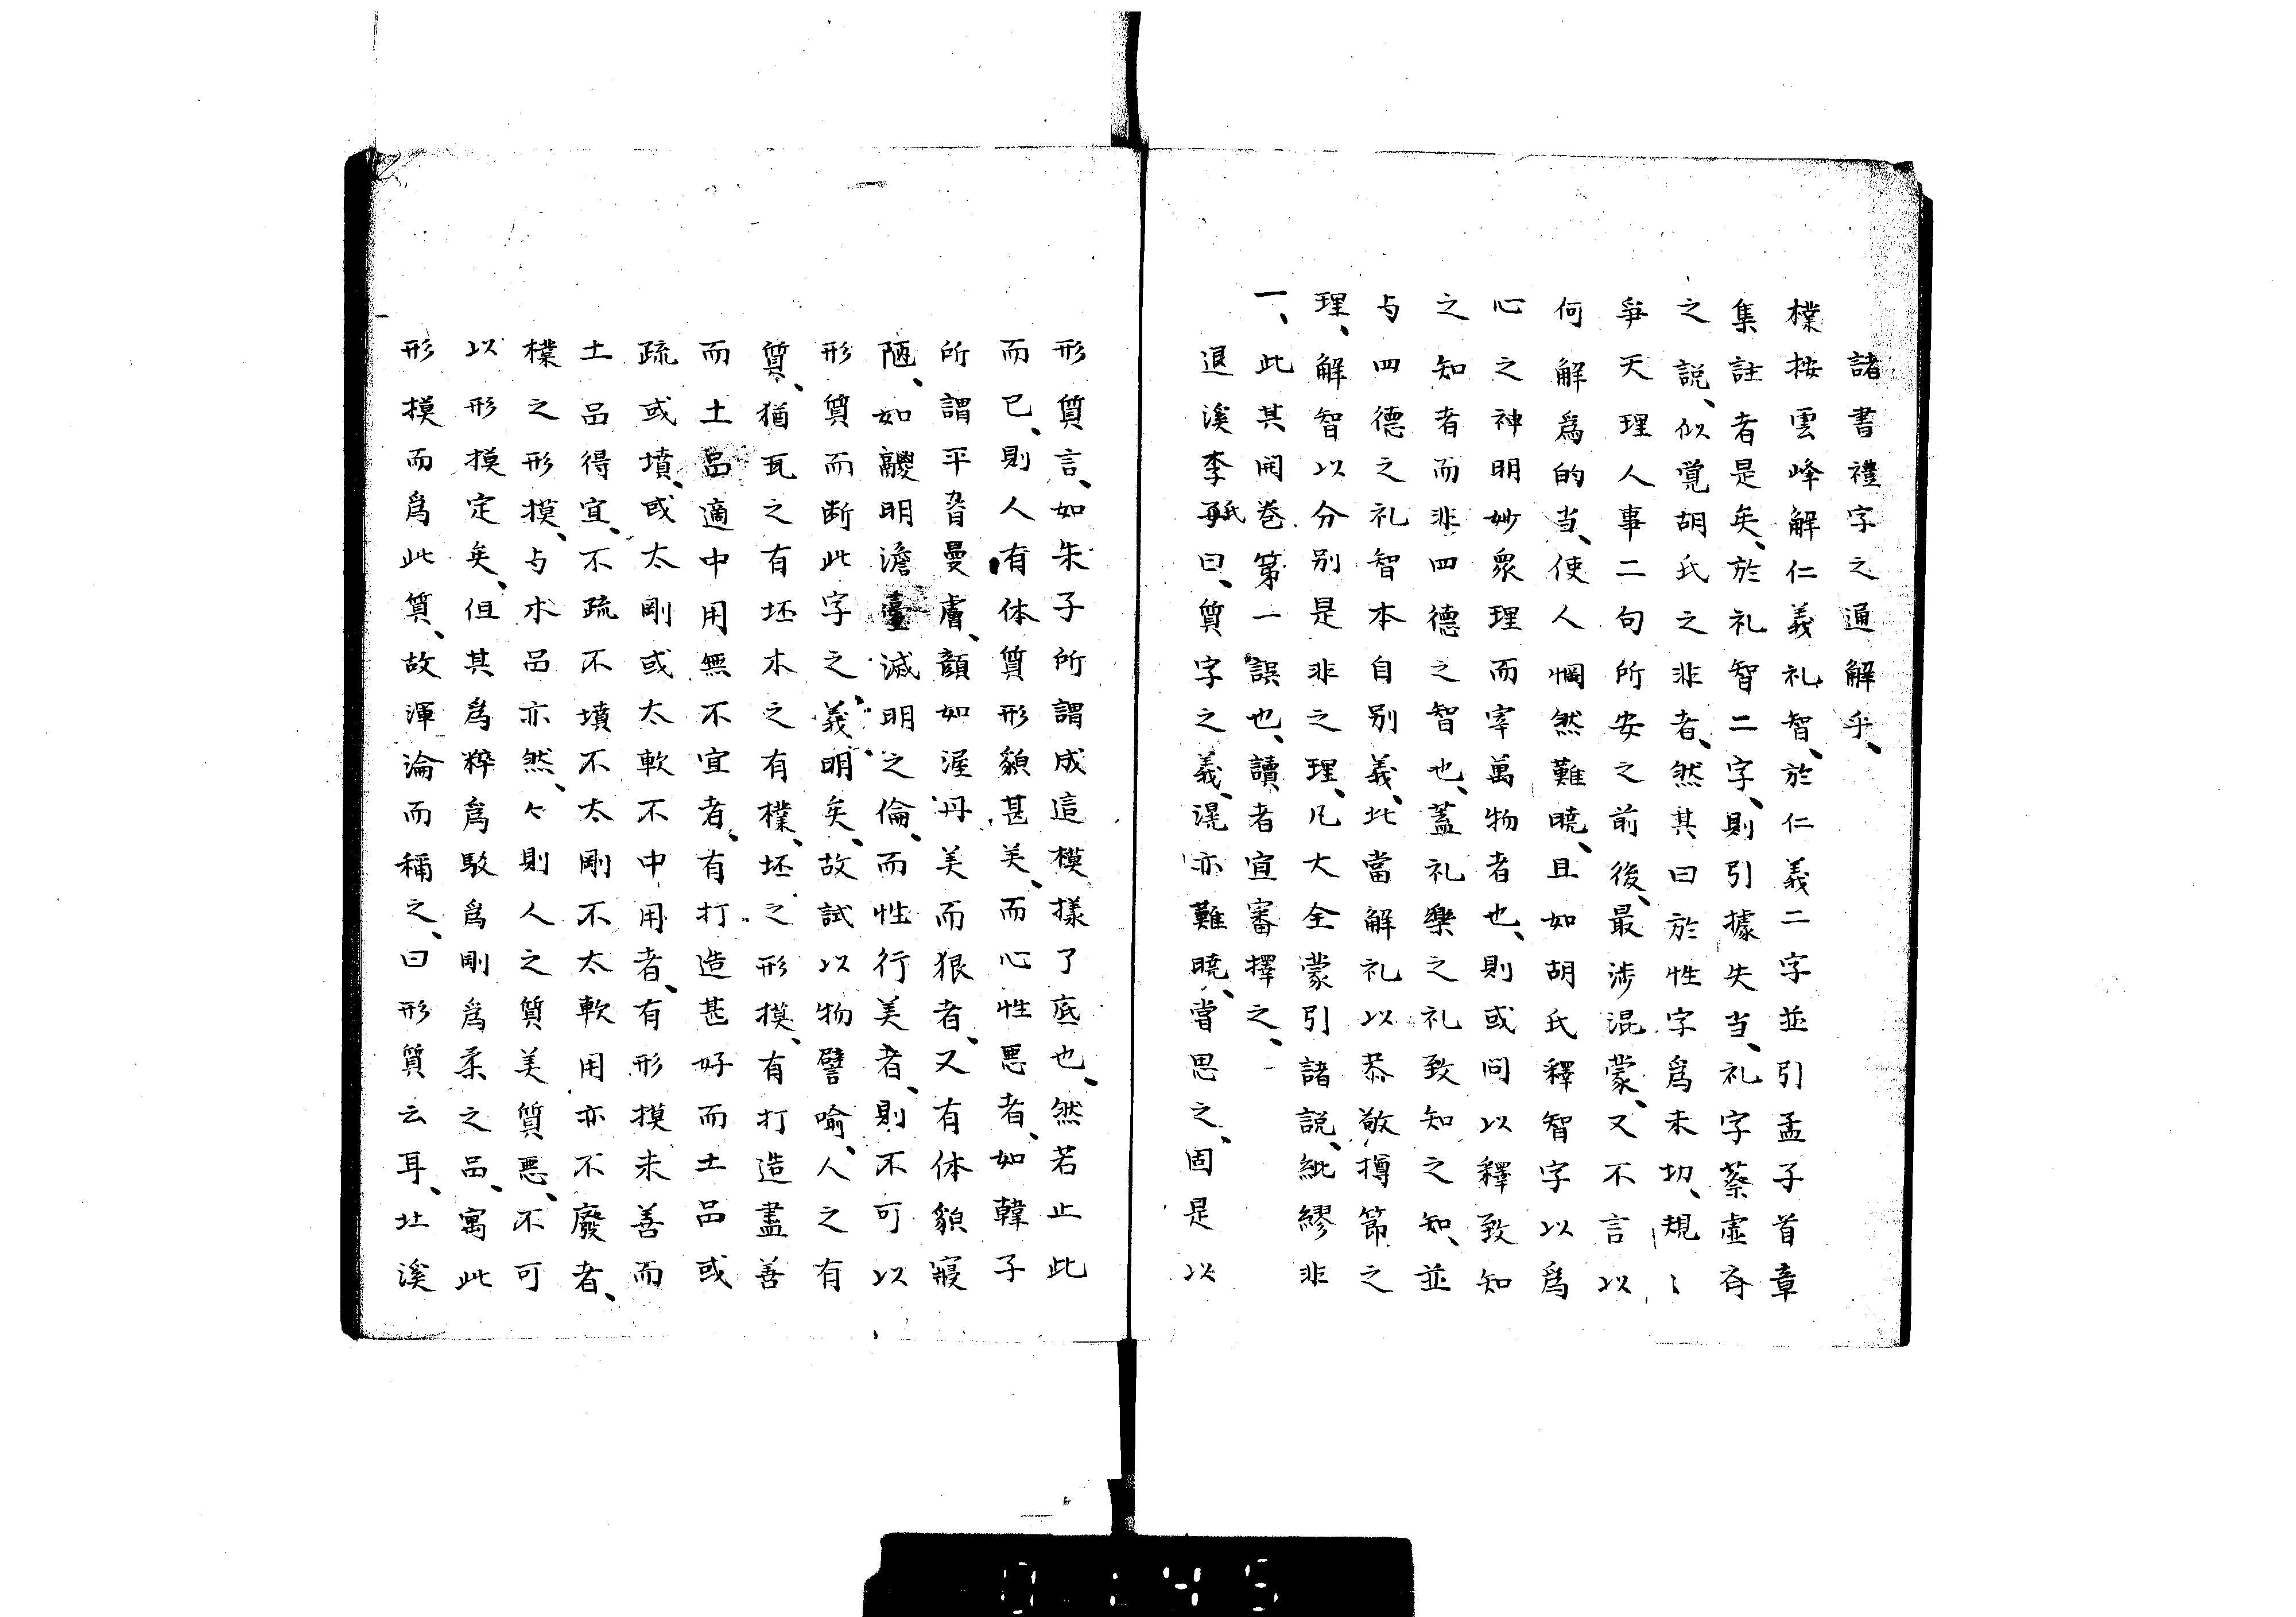 諸書禮字之通解乎、
樸按雲峰解仁義礼智、於仁義二字並引孟子首章
集註者是矣、於礼智二字、則引據失当、礼字蔡虚斉
之説、似覚胡氏之非者、然其曰於性字為未切、規〻
争天理人事二句所安之前後、最渉混蒙、又不言以
何解為的当、使人惘然難暁、且如胡氏釋智字以為
心之神明妙衆理而宰萬物者也、則或問以釋致知
之知者而非四德之智也、蓋礼樂之礼致知之知、並
与四德之礼智本自别義、此當解礼以恭敬撙節之
理、解智以分别是非之理、凡大全蒙引諸説、紕繆非
一、此其開巻第一誤也、讀者宜審擇之、
退溪李氏曰、質字之義、混亦難暁、嘗思之、固是以
形質言、如朱子所謂成這模樣了底也、然若止此
而已、則人有体質形貌甚美、而心性悪者、如韓子
所謂平脅曼膚、顔如渥丹美而狠者、又有体貌寢
陋、如鬷明澹臺滅明之倫、而性行美者、則不可以
形質而断此字之義、明矣、故試以物譬喻、人之有
質、猶瓦之有坯木之有樸、坯之形摸、有打造盡善
而土品適中用無不宜者、有打造甚好而土品或
疏或墳、或太剛或太軟不中用者、有形摸未善而
土品得宜、不疏不墳不太剛不太軟用亦不廢者、
樸之形摸、与木品亦然、々則人之質美質悪、不可
以形摸定矣、但其為粹為駁為剛為柔之品、寓此
形摸而為此質、故渾淪而稱之、曰形質云耳、北溪